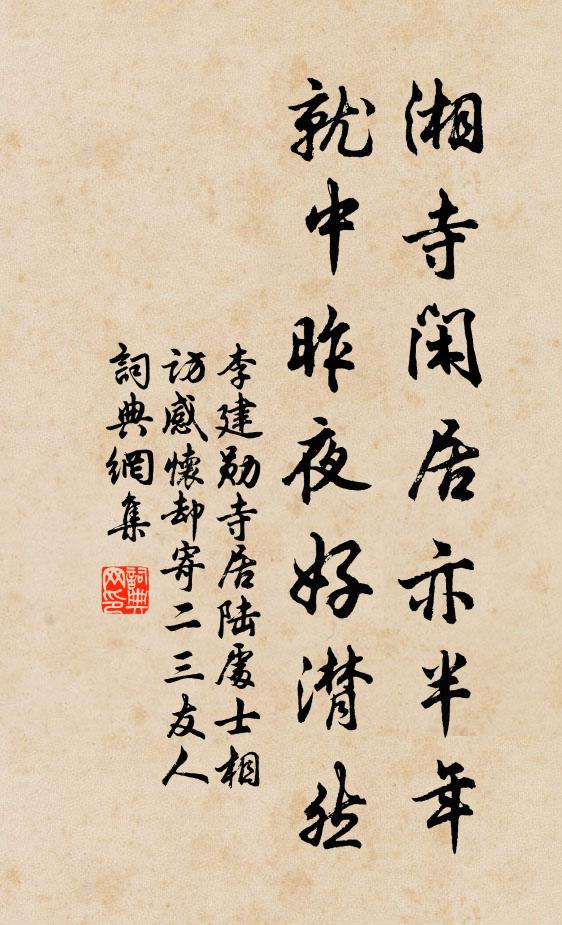 湘寺閑居亦半年
就中昨夜好潸然
李建勋寺居陆處士相
訪感懷却寄二三友人
詞典網集
詞典网印